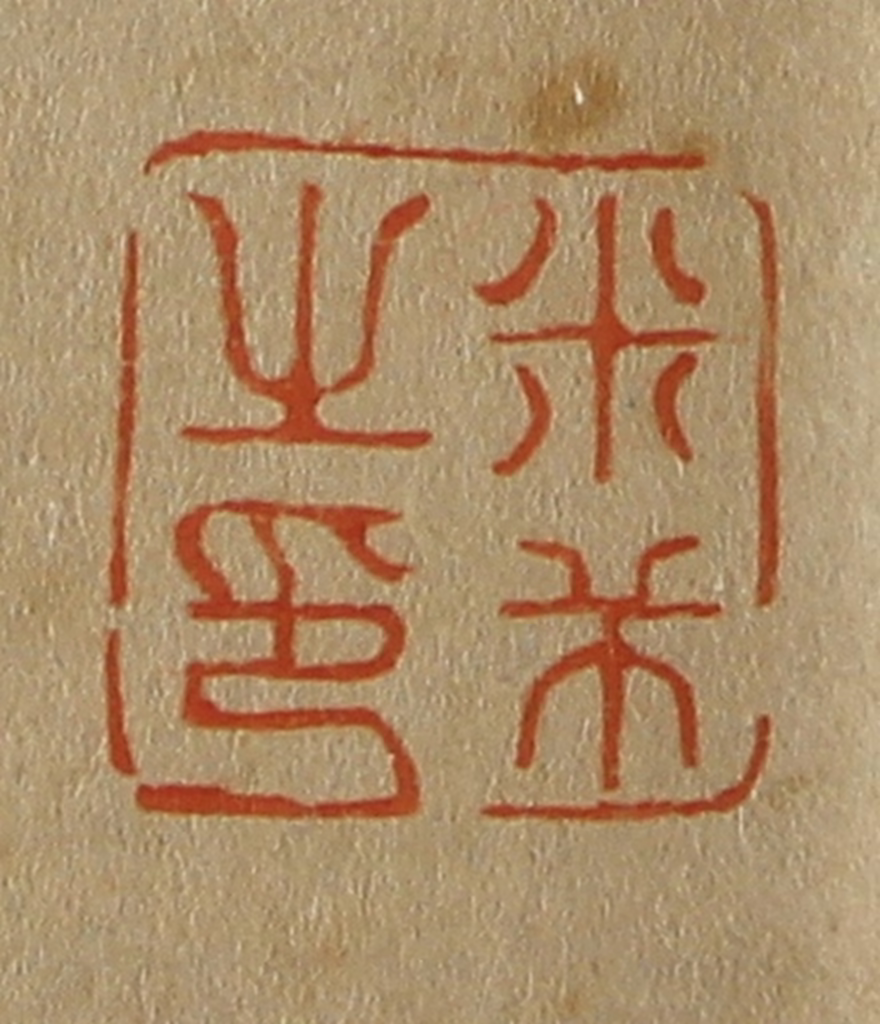 米芾
之印